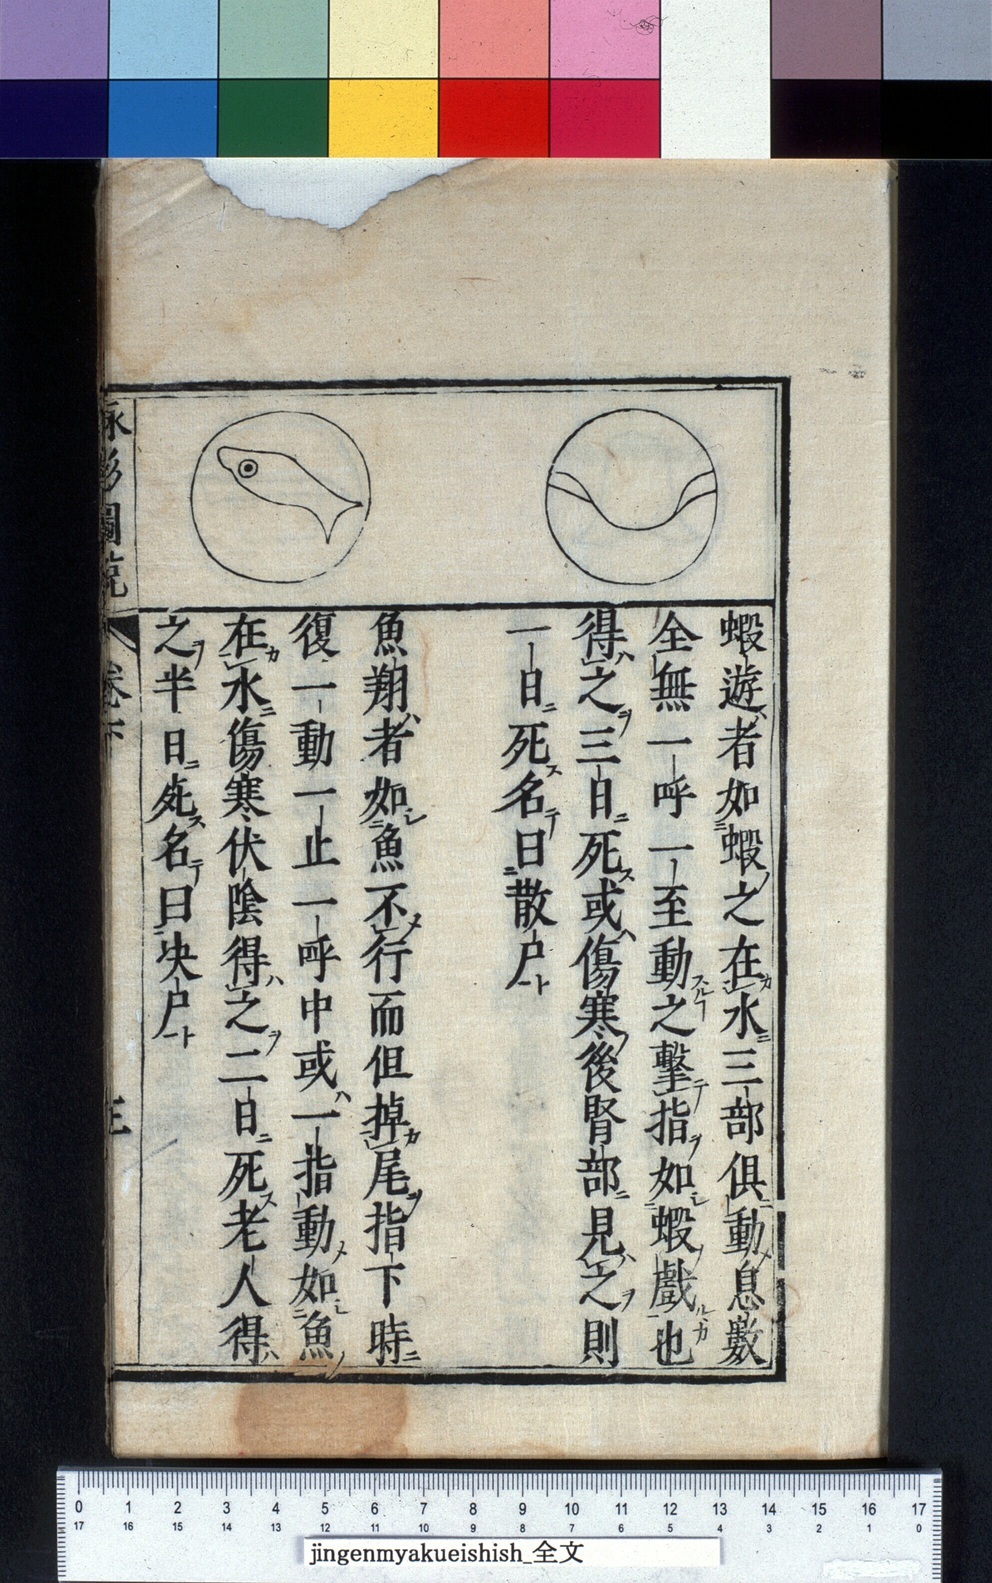 蝦遊者如蝦之在水三部俱動息數
全無一呼一至動之擊指如蝦戲也
得之三日死或傷寒後腎部見之則
一日死名曰散尸
魚翔者如魚不行而但掉尾指下時
復一動一止一呼中或一指動如魚
在水傷寒伏陰得之二日死老人得
之半日死名曰决尸
卷下
0 1 2 3 4 5 6 7 8 9 10 11 12 13 14 15 16 17
17 16 15 14 13 12 11 10 9 8 7 6 5 4 3 2 1 0
jingenmyakueishish_全文